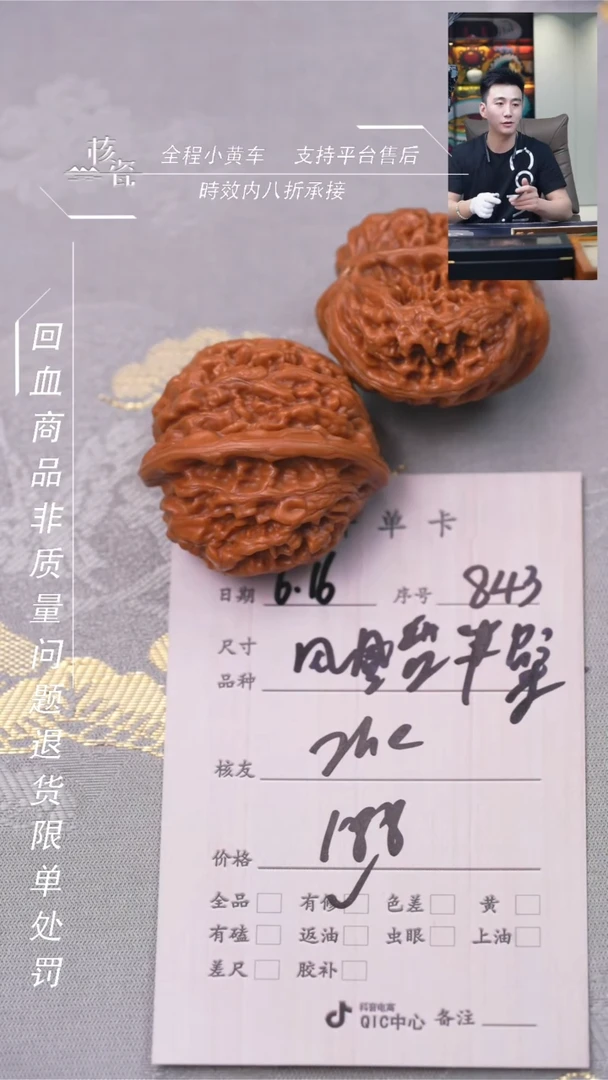 核瓷
全程小黄车 支持平台售后
時效内八折承接
回血商品非质量问题退货限单处罚
单卡
日期 6.16 序号 843
尺寸
品种
核友
价格 188
全品 有修 色差 黄
有磕 返油 虫眼 上油
差尺 胶补
抖音电商
QIC中心 备注